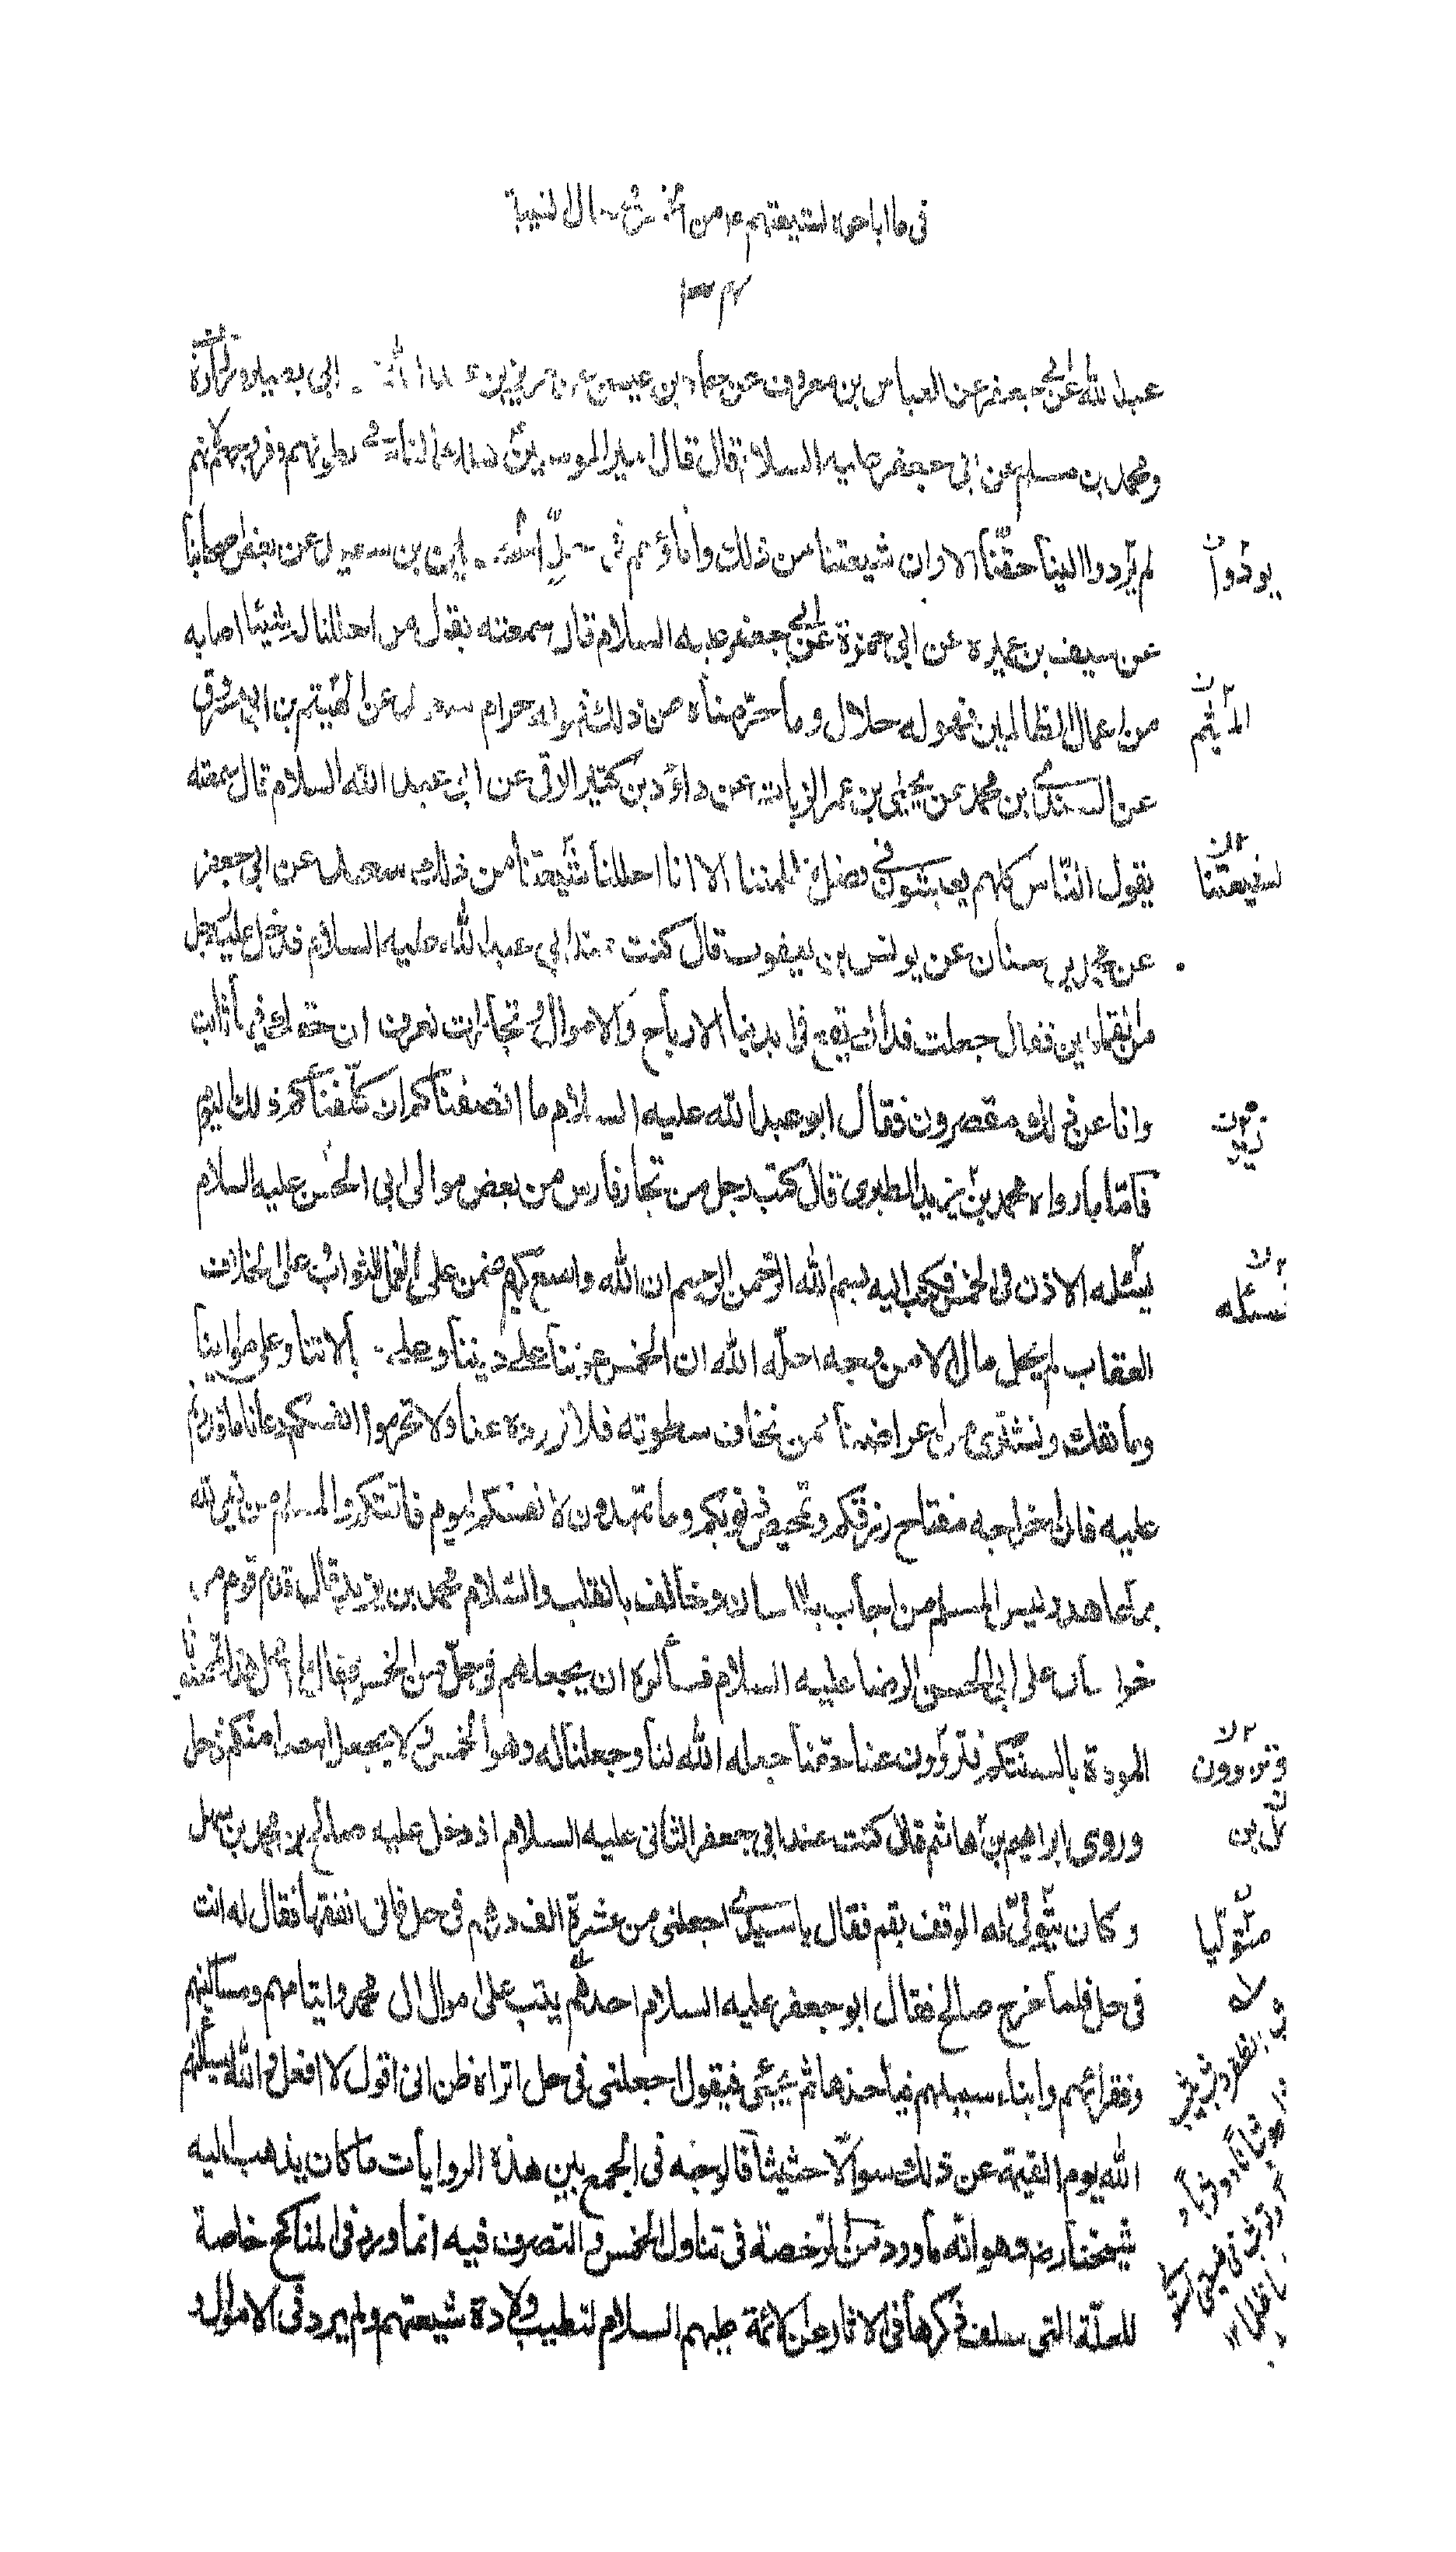 في ما اباحوه لشيعتهم ع من الخمس حال الغيبة
عبد الله عن ابي جعفر عن العباس بن معروف عن حماد بن عيسى عن حريز بن عبد الله عن ابي بصير وزرارة
ومحمد بن مسلم عن ابي جعفر عليه السلام قال قال امير المومنين هلك الناس في بطونهم وفروجهم لانهم
لم يردوا الينا حقنا الا وان شيعتنا من ذلك واباؤهم في حل سعد بن عبد الله عن بعض اصحابنا
عن سيف بن عميره عن ابي حمزة عن ابي جعفر عليه السلام قال سمعته يقول من احللنا له شيئا اصابه
من اعمال الظالمين فهو له حلال وما حرمناه من ذلك فهو له حرام سعد عن الهيثم بن ابي مسروق
عن السندي ابن محمد عن يحيى بن عمر الزيات عن داؤد بن كثير الرقي عن ابي عبد الله السلام قال سمعته
يقول الناس كلهم يعيشون في فضل مظلمتنا الا انا احللنا شيعتنا من ذلك سعد عن ابي جعفر
عن محمد بن سنان عن يونس بن يعقوب قال كنت عند ابي عبد الله عليه السلام فدخل عليه رجل
من القماطين فقال جعلت فداك يقع في ايدينا الارباح والاموال وتجارات نعرف ان حقك فيها ثابت
وانا عن ذلك مقصرون فقال ابو عبد الله عليه السلام ما انصفناكم ان كلفناكم ذلك اليوم
فاما ما رواه محمد بن يزيد الطبري قال كتب رجل من تجار فارس من بعض موالي ابي الحسن عليه السلام
يسئله الاذن في الخمس فكتب اليه بسم الله الرحمن الرحيم ان الله واسع كريم ضمن على العمل الثواب وعلى الخلاف
العقاب لم يحل مال الا من وجه احله الله ان الخمس عوننا على ديننا وعلى عيالاتنا وعلى موالينا
وما نفك ونشترى من اعراضنا ممن نخاف سطوته فلا تزووه عنا ولا تحرموا انفسكم دعانا ما قدرتم
عليه فان اخراجه مفتاح رزقكم وتمحيص ذنوبكم وما تمهدون لانفسكم ليوم فاقتكم والمسلم من يفي لله
بما عاهد وليس المسلم من اجاب باللسان وخالف بالقلب والسلام محمد بن يزيد قال قدم قوم من
خراسان على ابي الحسن الرضا عليه السلام فسألوه ان يجعلهم في حل من الخمس فقال ما امحل هذا تمحضونا
المودة بالسنتكم وتزوون عنا حقنا جعله الله لنا وجعلنا له وهو الخمس لا يجعل احدا منكم في حل
وروى ابراهيم بن هاشم قال كنت عند ابي جعفر الثاني عليه السلام اذ دخل عليه صالح بن محمد بن سهل
وكان يتولى له الوقف بقم فقال يا سيدي اجعلني من عشرة الف درهم في حل فاني انفقتها فقال له انت
في حل فلما خرج صالح فقال ابو جعفر عليه السلام احدهم يثب على اموال ال محمد وايتامهم ومساكينهم
وفقرائهم وابناء سبيلهم فياخذها ثم يجيئ فيقول اجعلني في حل اتراه ظن اني اقول لا افعل والله ليسئلنهم
الله يوم القيمة عن ذلك سوالا حثيثا فالوجه في الجمع بين هذه الروايات ما كان يذهب اليه
شيخنا رض وهو انه ما ورد من الرخصة في تناول الخمس والتصرف فيه انما ورد في المناكح خاصة
للعلة التي سلف ذكرها في الاثار عن الائمة عليهم السلام لتطيب ولادة شيعتهم ولم يرد في الاموال و
يودوا
الميثم
لشيعتنا
نسئله
وتزوون
متوليا